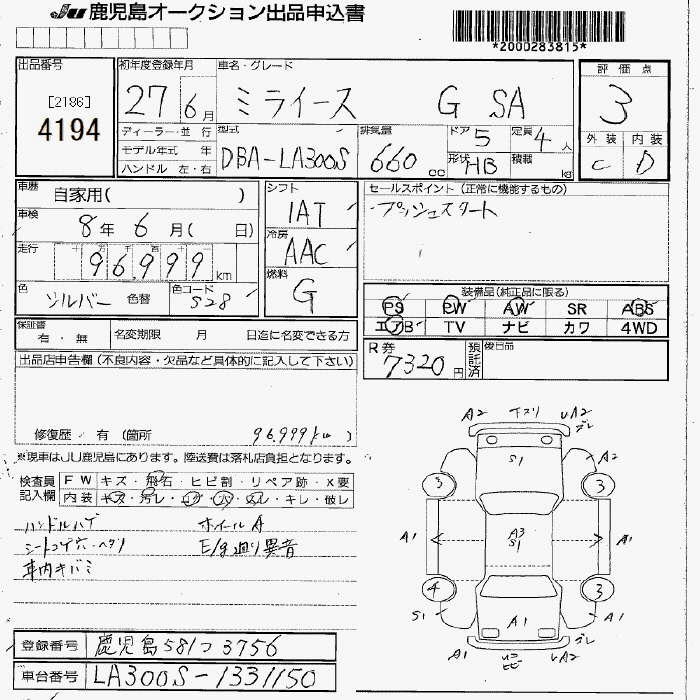 JU 鹿児島オークション出品申込書
*2000283815*
出品番号
[2186]
4194
初年度登録年月
27 6月
車名・グレード
ミライース G SA
評価点
3
外装 内装
C D
ディーラー・並 行
モデル年式 年
ハンドル 左・右
型式
DBA-LA300S
排気量
660 cc
ドア
5
定員
4 人
形状
HB
積載
kg
車歴
自家用( )
車検
8年 6月( 日)
走行
十 万 千 百 十 一
96,999 km
色
シルバー 色替
色コード
S28
シフト
IAT
冷房
AAC
燃料
G
セールスポイント(正常に機能するもの)
・プッシュスタート
装備品(純正品に限る)
PS PW AW SR ABS
エアB TV ナビ カワ 4WD
保証書
有・無
名変期限 月 日迄に名変できる方
R券
7320円
預託済
後日品
出品店申告欄(不良内容・欠品など具体的に記入して下さい)
修復歴 有 (箇所 96,999km)
※現車はJU鹿児島にあります。陸送費は落札店負担となります。
検査員記入欄
FW キズ・飛石・ヒビ割・リペア跡・X要
内装・キズ・汚レ・コゲ・穴・ヌレ・キレ・破レ
ハンドルハゲ ホイールA
シートコゲ穴・ヘタリ E/g廻り異音
車内キバミ
A2 キズリ UA2
ズレ
S1
A2 A2
3 3
A1 A3 S1 A1
4 3
S1 A1
A1 ズレ
A1 UA2
登録番号 鹿児島581つ3756
車台番号 LA300S-1331150